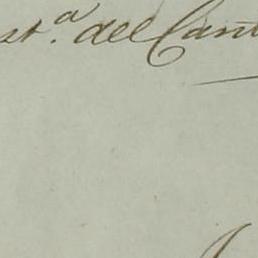 st.ª del Cant